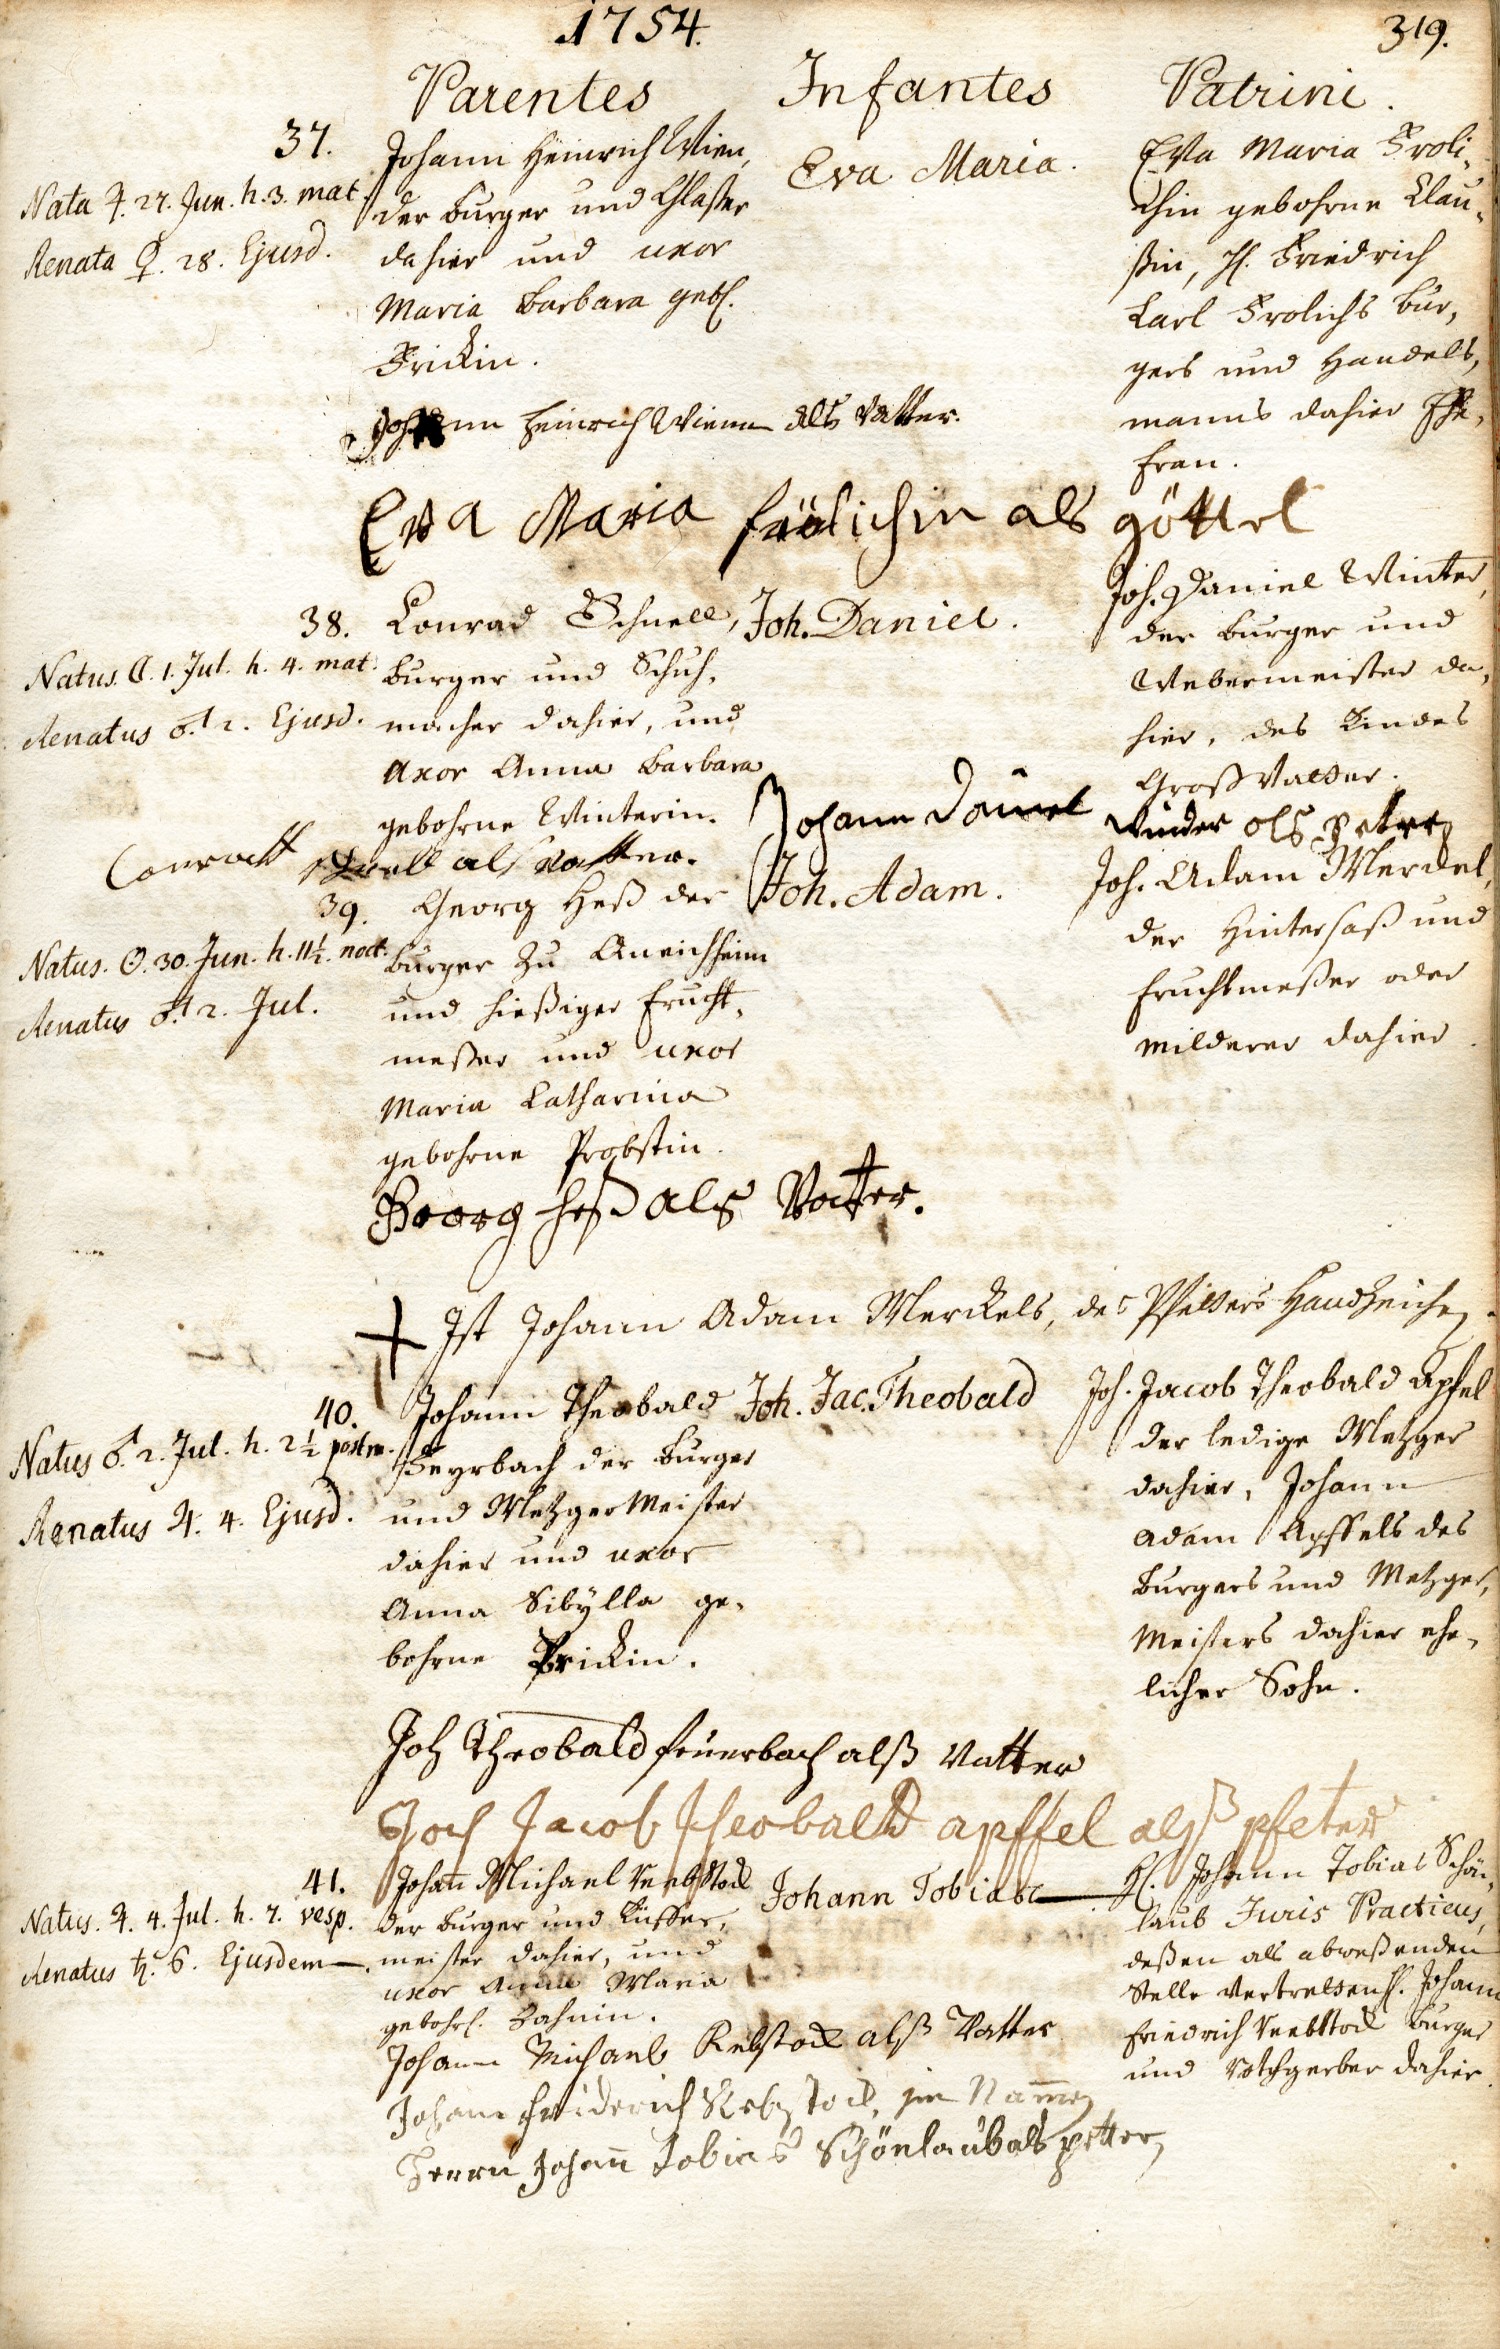 1754.
319.
Parentes
Infantes
Patrini.
37.
Nata ♃. 27. Jun. h. 3. mat.
Renata ♀. 28. Ejusd.
Johann Heinrich Wien,
der burger und Glaßer
dahier und uxor
Maria Barbara geb.
Frickin.
Eva Maria.
Eva Maria Froli-
chin gebohrne Clau-
ßin, H. Friedrich
Carl Frolichs bur-
gers und Handels-
manns dahier Ehe-
frau.
Johann Heinrich Wienn als Vatter.
Eva Maria frölichin als göttel
38.
Natus. ☾. 1. Jul. h. 4. mat.
Renatus ♂. 2. Ejusd.
Conrad Schnell,
burger und Schuh-
macher dahier, und
uxor Anna Barbara
gebohrne Winterin.
Joh. Daniel.
Joh. Daniel Winter,
der burger und
Webermeister da-
hier, des Kindes
Großvatter.
Johann Daniel Winder als petter
Conratt schnell als vatter.
39.
Natus. ☉. 30. Jun. h. 11½. noct.
Renatus ♂. 2. Jul.
Georg Heß der
burger zu Queichheim
und hießiger Frucht-
meßer und uxor
Maria Catharina
gebohrne Probstin.
Joh. Adam.
Joh. Adam Merckel,
der Hintersaß und
Fruchtmeßer oder
Milderer dahier.
Georg heß als Vatter.
+ Ist Johann Adam Merckels, des Pfetters Handzeichen.
40.
Natus ♂. 2. Jul. h. 2½ post m.
Renatus ♃. 4. Ejusd.
Johann Theobald
Feyrbach der burger
und Metzger Meister
dahier und uxor
Anna Sibylla ge-
bohrne Frickin.
Joh. Jac. Theobald
Joh. Jacob Theobald Apfel
der ledige Metzger
dahier, Johann
Adam Apffels des
burgers und Metzger-
Meisters dahier ehe-
licher Sohn.
Joh Theobald feuerbach alß Vatter
Joh Jacob theobald apffel alß pfeter
41.
Natus. ♃. 4. Jul. h. 7. vesp.
Renatus ♄. 6. Ejusdem
Johan Michael Rebstock
der burger und Küffer-
meister dahier, und
uxor Anna Maria
gebohr. Bahnin.
Johann Tobias
H. Johann Tobias Schön-
laub Juris Practicus,
deßen als abweßenden
Stelle vertretten H. Johann
Friedrich Rebstock burger
und Rothgerber dahier.
Johann Michael Rebstock alß Vatter
Johann friderich Rebstock, im Namen
Herrn Johann Tobias Schönlaub als petter